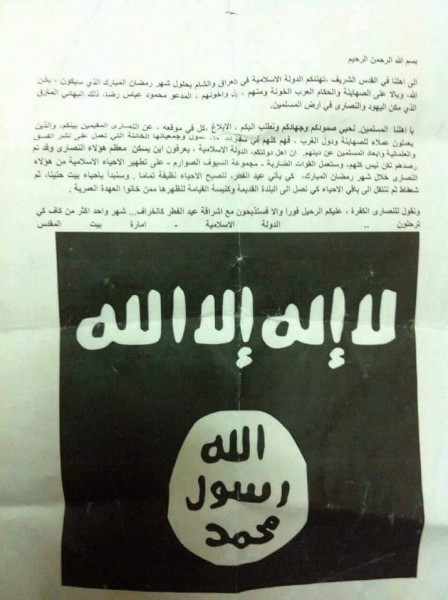 بسم الله الرحمن الرحيم
الى اهلنا في القدس الشريف، تهنئكم الدولة الاسلامية في العراق والشام بحلول شهر رمضان المبارك الذي سيكون ، بإذن
الله، وبالا على الصهاينة والحكام العرب الخونة ومنهم ، بل واخونهم ، المدعو محمود عباس رضا، ذلك البهائي المارق
الذي مكن اليهود والنصارى في ارض المسلمين.
يا اهلنا المسلمين. نحيي صمودكم وجهادكم ونطلب اليكم ، الابلاغ ،كل في موقعه ، عن النصارى المقيمين بينكم، والذين
يعملون عملاء للصهاينة ودول الغرب ، فهم كلهم في وجمعياتها الخائنة التي تعمل على نشر الفسق
والعلمانية وابعاد المسلمين عن دينهم. ان اهل دولتكم، الدولة الاسلامية ، يعرفون اين يسكن معظم هؤلاء النصارى وقد تم
رصدهم لكن ليس كلهم، وستعمل القوات الضاربة - مجموعة السيوف الصوارم - على تطهير الاحياء الاسلامية من هؤلاء
النصارى خلال شهر رمضان المبارك، كي يأتي عيد الفطر، لتصبح الاحياء نظيفة تماما . وسنبدأ باحياء بيت حنينا، ثم
شعفاط ثم ننتقل الى باقي الاحياء كي نصل الى البلدة القديمة وكنيسة القيامة لنطهرها ممن خانوا العهدة العمرية .
ونقول للنصارى الكفرة ، عليكم الرحيل فورا والا فستذبحون مع اشراقة عيد الفطر كالخراف... شهر واحد اكثر من كاف كي
ترحلون .. الدولة الاسلامية - امارة بيت المقدس
لا إله إلا الله
الله
رسول
محمد